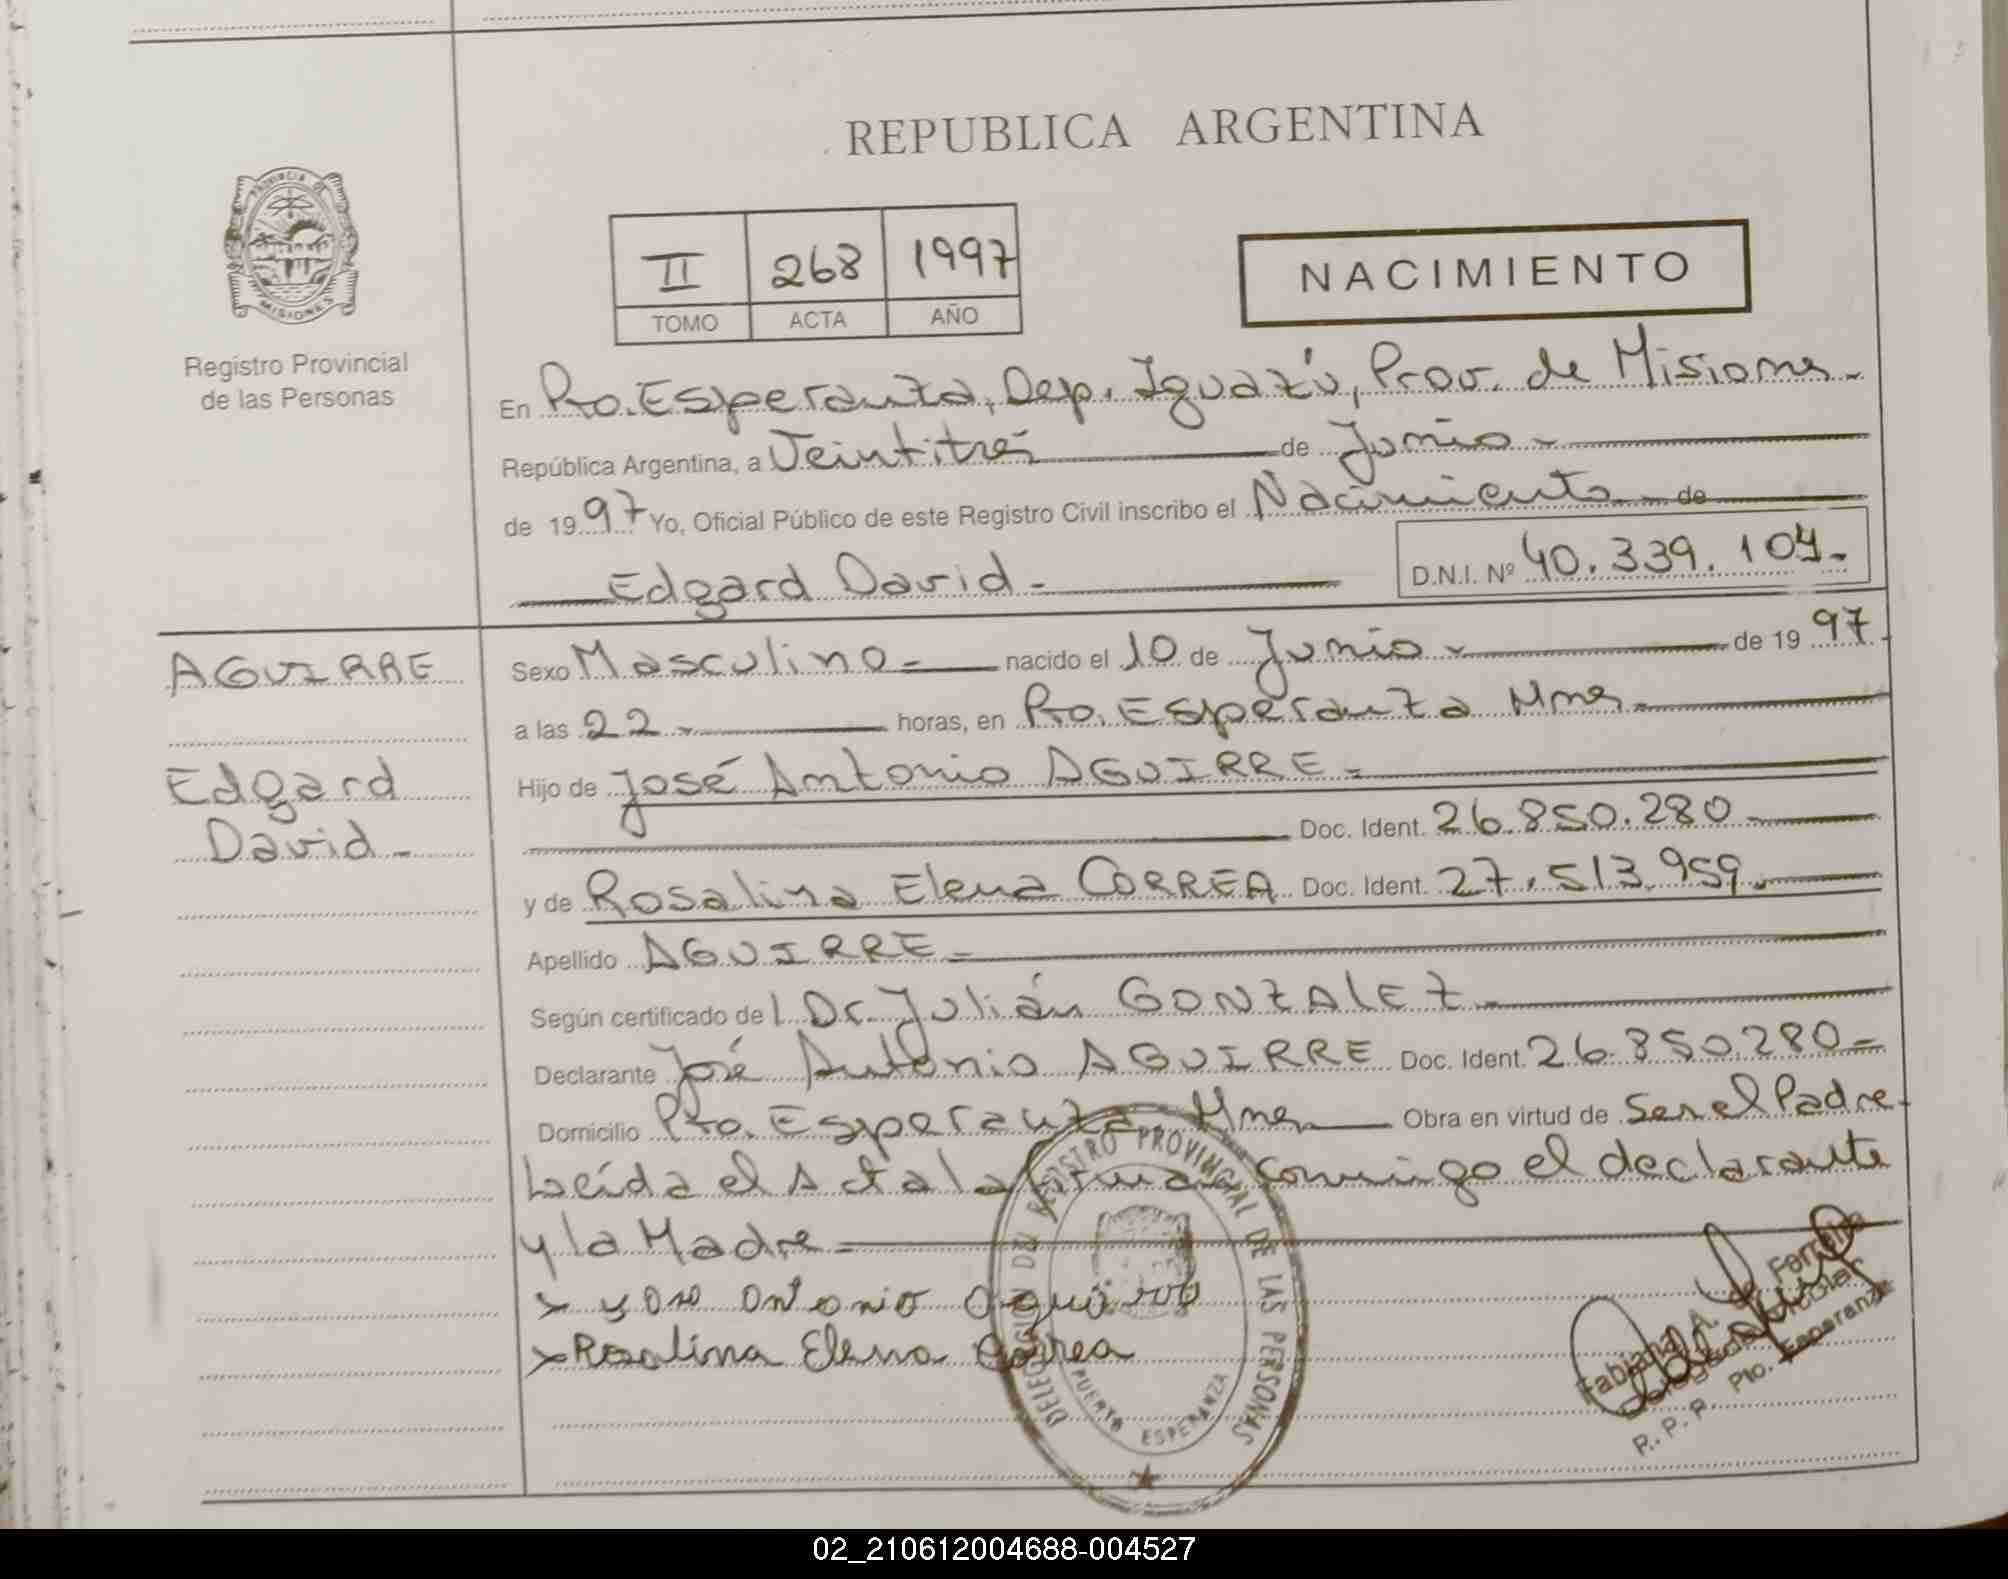 REPUBLICA ARGENTINA
PROVINCIA DE
MISIONES
Registro Provincial
de las Personas
II 268 1997
TOMO ACTA AÑO
NACIMIENTO
En Pto. Esperanza, Dep. Iguazú, Prov. de Misiones.
República Argentina, a Veintitrés de Junio
de 1997 Yo, Oficial Público de este Registro Civil inscribo el Nacimiento de
Edgard David.
D.N.I. Nº 40.339.104.
AGUIRRE
Edgard
David
Sexo Masculino nacido el 10 de Junio de 1997
a las 22 horas, en Pto. Esperanza Mnes.
Hijo de José Antonio AGUIRRE
Doc. Ident. 26.850.280
y de Rosalina Elena CORREA Doc. Ident. 27.513.959
Apellido AGUIRRE
Según certificado del Dr. Julián GONZALEZ
Declarante José Antonio AGUIRRE Doc. Ident. 26.850.280
Domicilio Pto. Esperanza Mnes Obra en virtud de Ser el Padre.
Leída el Acta la firman Conmigo el declarante
y la Madre
x Antonio
x Rosalina Elena Correa
DELEGACION DEL REGISTRO PROVINCIAL DE LAS PERSONAS
PUERTO ESPERANZA
Fabiana A. Ferreira
R. P. P. Pto. Esperanza
02_210612004688-004527